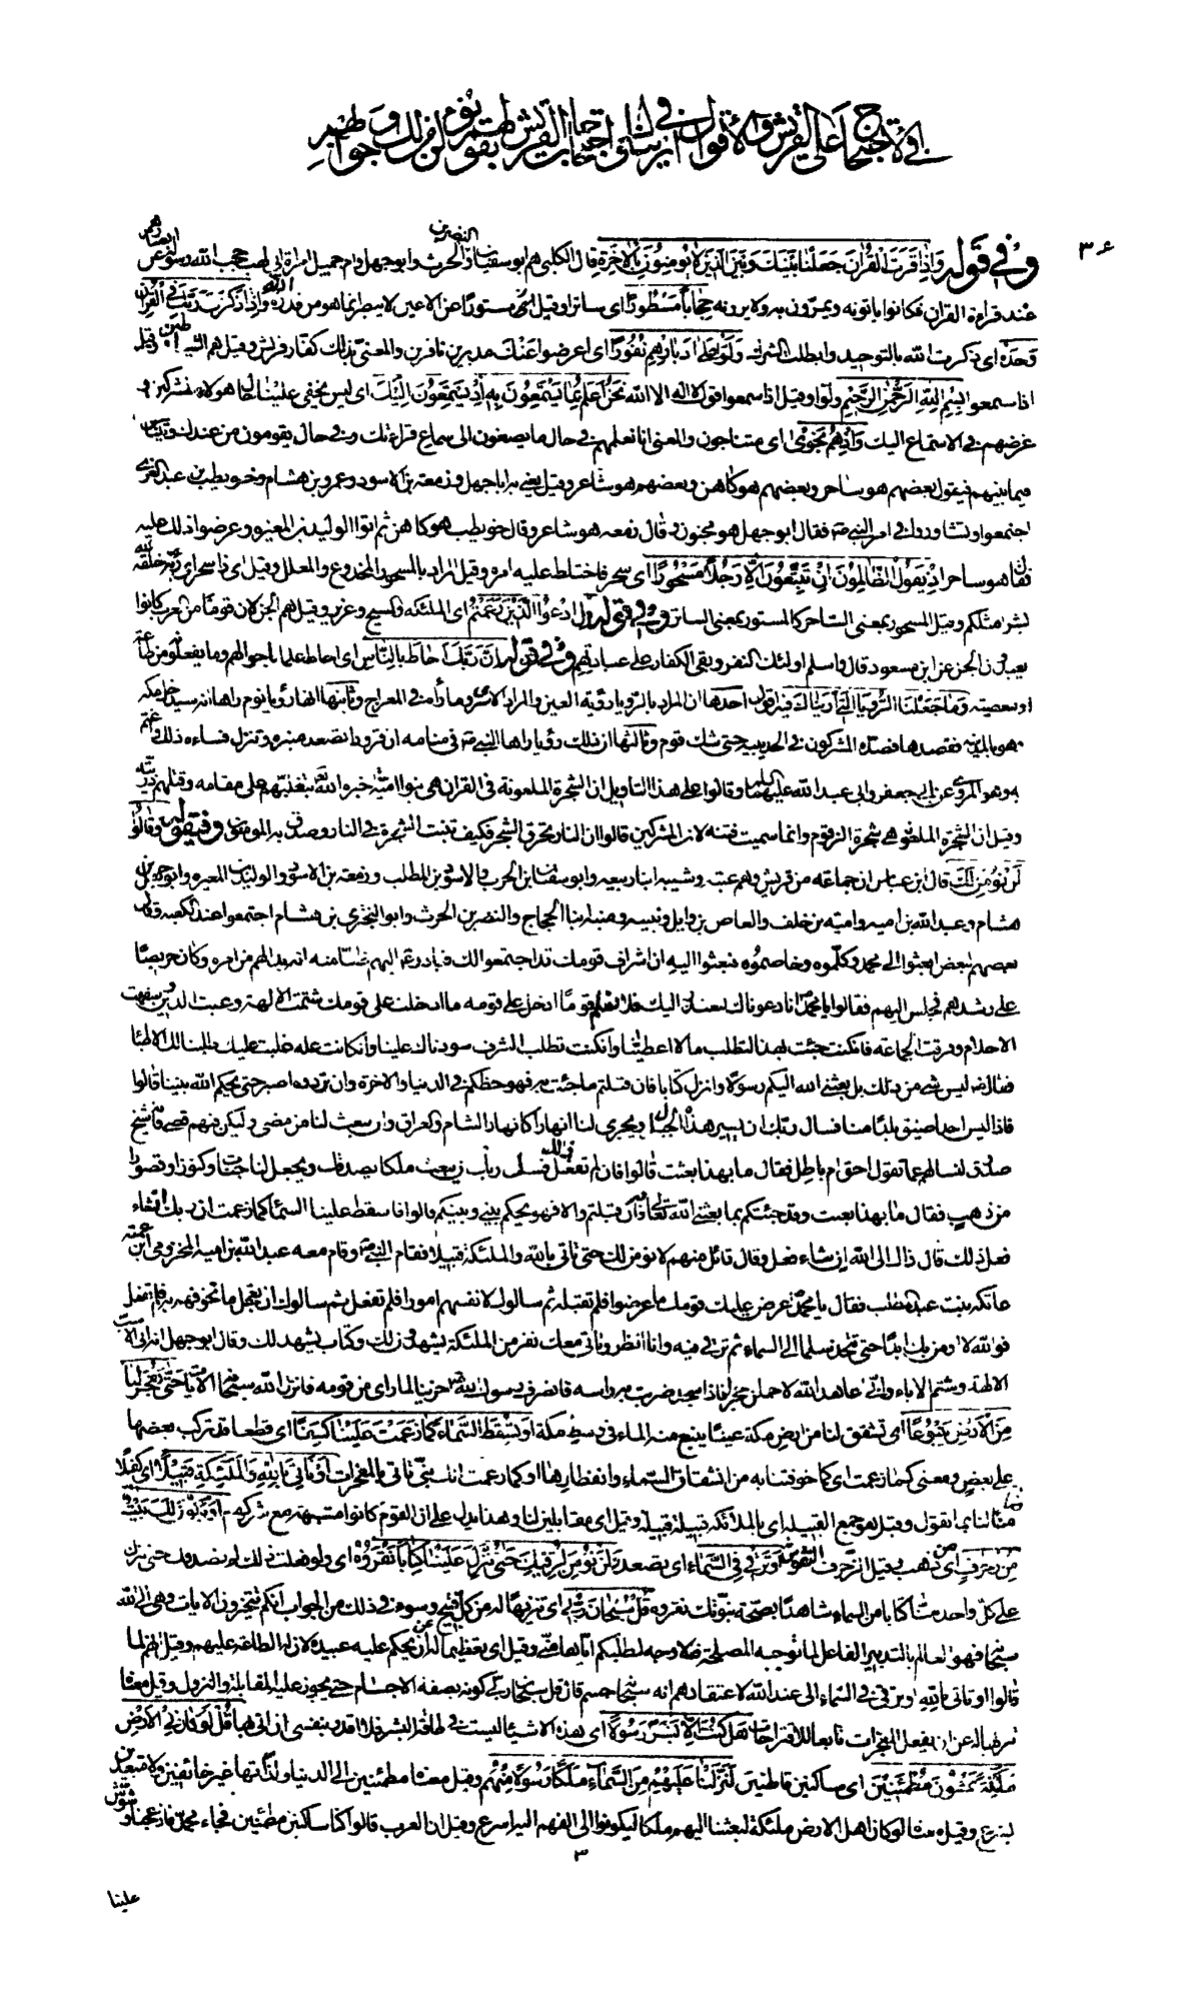 في الاحتجاج على القريش والاقوال في
٣٤
وفي قوله وَاِذَا قَرَاْتَ الْقُرْاٰنَ جَعَلْنَا بَيْنَكَ وَبَيْنَ الَّذِيْنَ لَا يُؤْمِنُوْنَ بِالْاٰخِرَةِ قال الكلبي هم ابو سفيان والنضر بن الحرث وابو جهل وام جميل امراة ابي لهب حجب الله رسوله عن ابصارهم
عند قراءة القران فكانوا ياتونه ويمرّون به ولا يرونه حِجَاباً مَسْتُوراً اى ساترا وقيل اى مستورا عن الاعين لا يبصر انما هو من قدرة الله وَاِذَا ذَكَرْتَ رَبَّكَ فِى الْقُرْاٰنِ
وَحْدَهُ اى ذكرت الله بالتوحيد وابطلت الشرك وَلَّوْا عَلٰى اَدْبَارِهِمْ نُفُورًا اى اعرضوا عنك مدبرين نافرين والمعنى بذلك كفار قريش وقيل هم الشياطين وقيل
اذا سمعوا بِسْمِ اللهِ الرَّحْمٰنِ الرَّحِيْمِ ولّوا وقيل اذا سمعوا قول لا اله الا الله نَحْنُ اَعْلَمُ بِمَا يَسْتَمِعُونَ بِهٖ اِذْ يَسْتَمِعُونَ اِلَيْكَ اى ليس يخفى علينا حال هولاء المشركين و
غرضهم في الاستماع اليك وَاِذْ هُمْ نَجْوٰى اى متناجون والمعنى انا نعلمهم في حال ما يصغون الى سماع قراءتك وفي حال يقومون من عندك ويتناجون
فيما بينهم فيقول بعضهم هو ساحر وبعضهم هو كاهن وبعضهم هو شاعر وقيل يعنى به ابا جهل وزمعة بن الاسود وعمرو بن هشام وخويطب بن عبد العزى
اجتمعوا وتشاوروا في امر النبي ص فقال ابو جهل هو مجنون وقال زمعه هو شاعر وقال خويطب هو كاهن ثم اتوا الوليد بن المغيره وعرضوا ذلك عليه
فقال هو ساحر اِذْ يَقُولُ الظَّالِمُونَ اِنْ تَتَّبِعُونَ اِلَّا رَجُلًا مَسْحُورًا اى سحر فاختلط عليه امره وقيل اراد بالمسحور المخدوع والمعلل وقيل اى ذا سحر اى رئة خلقه الله
بشرا مثلكم وقيل المسحور بمعنى الساحر كالمستور بمعنى الساتر وفي قوله قل ادْعُوا الَّذِيْنَ زَعَمْتُمْ اى الملئكه والمسيح وعزير وقيل هم الجن لان قوما من العرب كانوا
يعبدون الجن عن ابن مسعود قال واسلم اولئك النفر وبقى الكفار على عبادتهم وفي قوله اِنَّ رَبَّكَ اَحَاطَ بِالنَّاسِ اى احاط علما باحوالهم وما يفعلونه من طاعة
او معصيته وَمَا جَعَلْنَا الرُّؤْيَا الَّتِى اَرَيْنَاكَ فيه اقوال احدها ان المراد بالرؤيا رؤية العين والمراد الاسرى وما رأه في المعراج وثانيها انها رؤيا نوم راها انه سيدخل مكه
وهو بالمدينه فقصدها فصده المشركون في الحديبيه حتى شك قوم وثالثها ان ذلك رؤيا راها النبي ص في منامه ان قرودا تصعد منبره وتنزل فساءه ذلك واغتم
به وهو المروي عن ابي جعفر وابي عبد الله عليهما السلام وقالوا على هذا التاويل ان الشجرة الملعونة في القران هي بنو امية اخبره الله تعالى بتغلبهم على مقامه وقتلهم ذريته
وقيل ان الشجره الملعونه هي شجرة الزقوم وانما سميت فتنه لان المشركين قالوا ان النار تحرق الشجر فكيف تنبت الشجرة في النار وصدق به المومنون وفي قوله وَقَالُوا
لَنْ نُؤْمِنَ لَكَ قال ابن عباس ان جماعه من قريش وهم عتبه وشيبه ابنا ربيعه وابو سفيان بن الحرب والاسود بن المطلب وزمعه بن الاسود والوليد بن المغيره وابو جهل بن
هشام وعبد الله بن اميه واميه بن خلف والعاص بن وايل ونبيه ومنبه ابنا الحجاج والنضر بن الحرث وابو البختري بن هشام اجتمعوا عند الكعبه وقال
بعضهم لبعض ابعثوا الى محمد وكلّموه وخاصموه فبعثوا اليه ان اشراف قومك قد اجتمعوا لك فبادر ص اليهم ظنا منه انه بدا لهم من امره وكان حريصًا
على رشدهم فجلس اليهم فقالوا يا محمد انا دعوناك لنعذر اليك فلا نعلم قومًا ادخل على قومه ما ادخلت على قومك شتمت الالهة وعبت الدين وسفهت
الاحلام وفرقت الجماعه فان كنت جئت بهذا لتطلب مالا اعطيناك وان كنت تطلب الشرف سودناك علينا وان كانت عله غلبت عليك طلبنا لك الاطبا
فقال ص ليس شيء من ذلك بل بعثني الله اليكم رسولا وانزل كتابا فان قبلتم ما جئت به فهو حظكم في الدنيا والاخرة وان تردوه اصبر حتى يحكم الله بيننا قالوا
فاذا ليس احد اضيق بلدًا منا فسال ربك ان يسير هذه الجبال ويجري لنا انهارا كانهار الشام والعراق وان يبعث لنا من مضى وليكن فيهم قصي فانه شيخ
صدوق لنسالهم عما تقول احق ام باطل فقال ما بهذا بعثت قالوا فان لم تفعل ذلك فسل ربك ان يبعث ملكا يصدقك ويجعل لنا جنات وكنوزا وقصورا
من ذهب فقال ما بهذا بعثت وقد جئتكم بما بعثني الله تعالى به فان قبلتم والا فهو يحكم بيني وبينكم قالوا فاسقط علينا السماء كما زعمت ان ربك ان شاء
فعل ذلك قال ذاك الى الله ان شاء فعل وقال قائل منهم لا نؤمن لك حتى تاتي بالله والملئكة قبيلا فقام النبي ص وقام معه عبد الله بن اميه المخزومي ابن عمته
عاتكه بنت عبد المطلب فقال يا محمد عرض عليك قومك ما عرضوا فلم تقبله ثم سالوك لانفسهم امورا فلم تفعل ثم سالوك ان تعجل ما تخوفهم به فلم تفعل
فوالله لا اومن بك ابدًا حتى تتخذ سلما الى السماء ثم ترقى فيه وانا انظر وتاتي معك نفر من الملئكة يشهدون لك وكتاب يشهد لك وقال ابو جهل انه ابى الا سب
الالهة وشتم الاباء واني اعاهد الله لاحملن حجرا فاذا سجد ضربت به راسه فانصرف رسول الله ص حزينا لما راى من قومه فانزل الله سبحانه الايات حَتّٰى تَفْجُرَ لَنَا
مِنَ الْاَرْضِ يَنْبُوعًا اى تشقق لنا من ارض مكة عينًا ينبع منه الماء في وسط مكة اَوْ تُسْقِطَ السَّمَاءَ كَمَا زَعَمْتَ عَلَيْنَا كِسَفًا اى قطعا قد تركب بعضها
على بعض ومعنى كما زعمت اى كما خوفتنا به من انشقاق السماء وانفطارها او كما زعمت انك نبي تاتي بالمعجزات اَوْ تَأْتِىَ بِاللهِ وَالْمَلٰئِكَةِ قَبِيْلًا اى كفيلا
ضامنا لنا بما تقول وقيل هو جمع القبيله اى بالملائكه قبيلة قبيلة وقيل اى مقابلين لنا وهذا يدل على ان القوم كانوا مشبهة مع شركهم اَوْ يَكُوْنَ لَكَ بَيْتٌ
مِنْ زُخْرُفٍ اى من ذهب وقيل الزخرف النقوش اَوْ تَرْقٰى فِى السَّمَاءِ اى تصعد وَلَنْ نُؤْمِنَ لِرُقِيِّكَ حَتّٰى تُنَزِّلَ عَلَيْنَا كِتَابًا نَقْرَؤُهُ اى ولو فعلت ذلك لم نصدقك حتى تنزل
على كل واحد منا كتابا من السماء شاهدا بصحة نبوتك نقروه قُلْ سُبْحَانَ رَبِّى اى تنزيها له من كل قبيح وسوء وفي ذلك من الجواب انكم تتخيرون الايات وهي الى الله
سبحانه فهو العالم بالتدبير الفاعل لما توجبه المصلحة فلا وجه لطلبكم اياها مني وقيل اى تعظيما له عن ان يحكم عليه عبيده لان له الطاعة عليهم وقيل انهم لما
قالوا او تاتي بالله او ترقى في السماء الى عند الله لاعتقادهم انه سبحانه جسم قال قل سبحان ربي عن كونه بصفة الاجسام حتى يجوز عليه المقابلة والنزول وقيل معناه
تنزيها له عن ان يفعل المعجزات تابعا للاقتراحات هَلْ كُنْتُ اِلَّا بَشَرًا رَسُولًا اى هذه الاشياء ليست في طاقة البشر فلا اقدر بنفسى ان اتى بها قُلْ لَوْ كَانَ فِى الْاَرْضِ
مَلٰئِكَةٌ يَمْشُوْنَ مُطْمَئِنِّيْنَ اى ساكنين قاطنين لَنَزَّلْنَا عَلَيْهِمْ مِنَ السَّمَاءِ مَلَكًا رَسُولًا منهم وقيل معناه مطمئنين الى الدنيا ولذاتها غير خائفين ولا متعبدين
بشرع وقيل معناه لو كان اهل الارض ملئكة لبعثنا اليهم ملكا ليكونوا الى الفهم اليه اسرع وقيل ان العرب قالوا كنا ساكنين مطمئنين فجاء محمد فازعجنا وشوش
٣
علينا